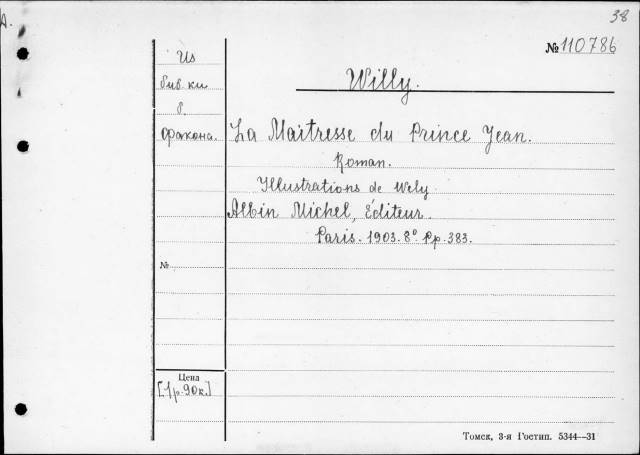 38
A.
№ 110786
Из
библ-ки
б.
Фракона.
Willy.
La Maitresse du Prince Jean.
Roman.
Illustrations de Wely
Albin Michel, Éditeur.
Paris. 1903. 8° Pp. 383.
№
Цена
[1 р. 90 к.]
Томск, 3-я Гостип. 5344—31